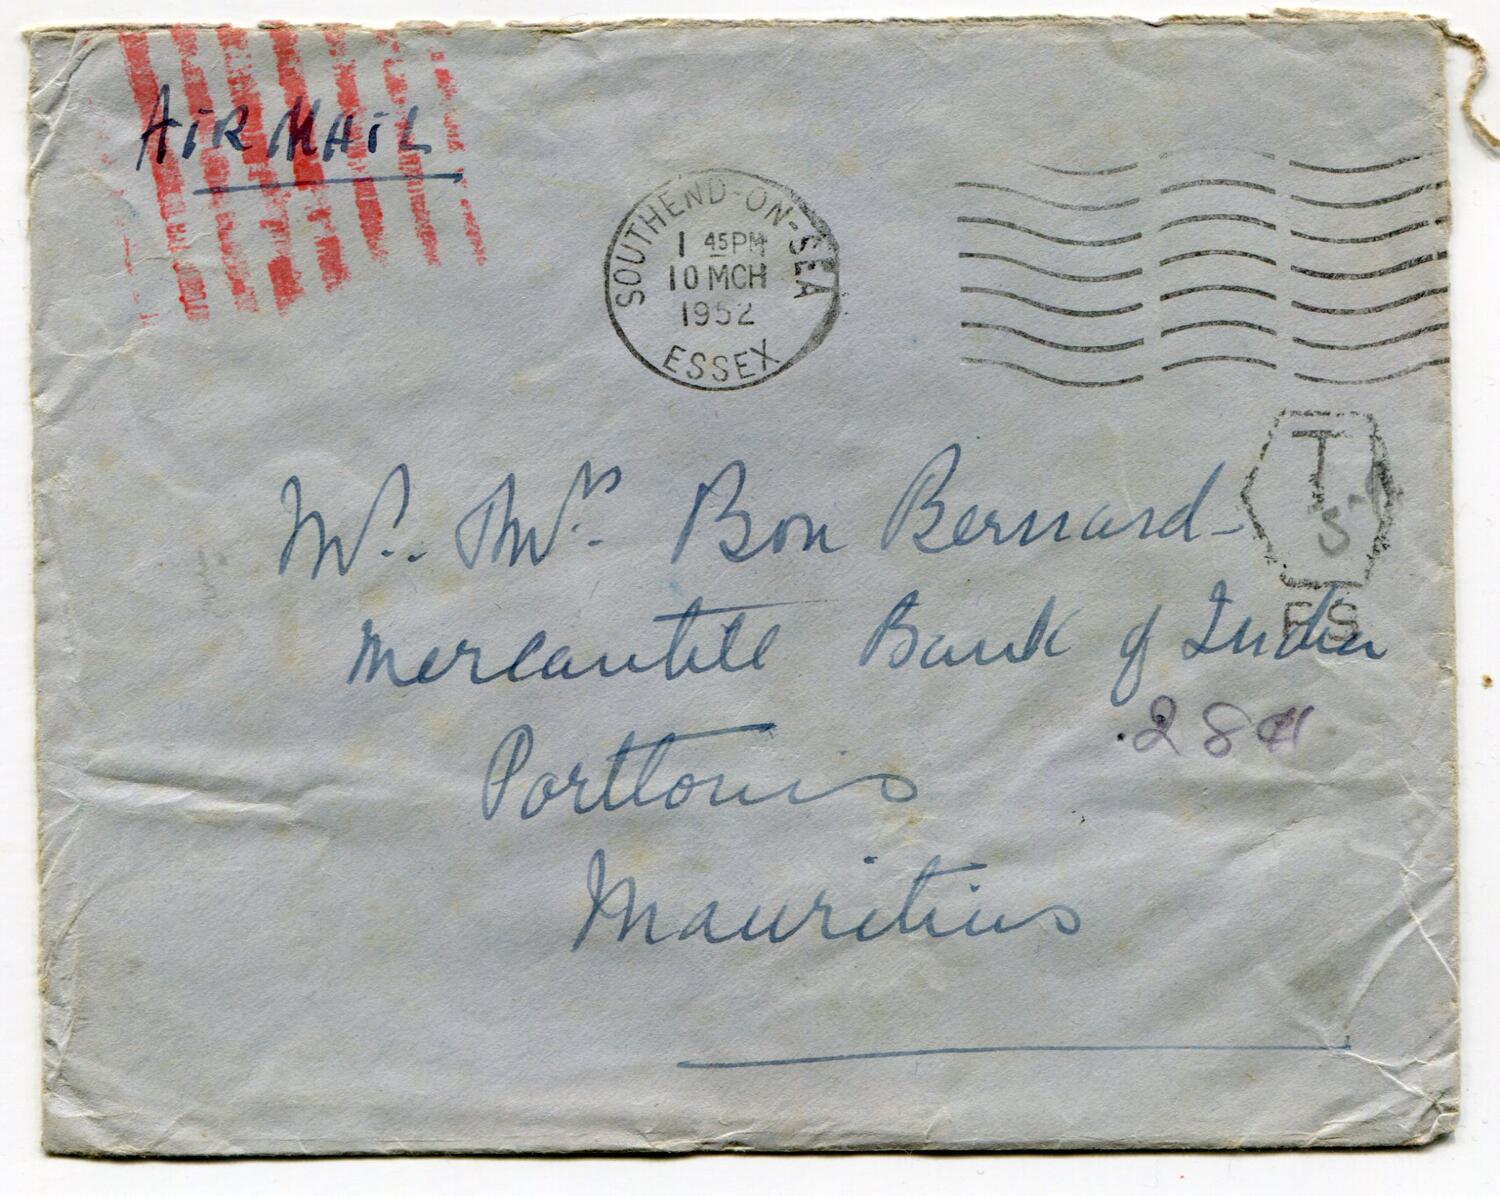 AiR MAiL
SOUTHEND-ON-SEA
1 45PM
10 MCH
1952
ESSEX
T
5
FS
Mr. Mrs. Bon Bernard
Mercantile Bank of India
Port Louis
Mauritius